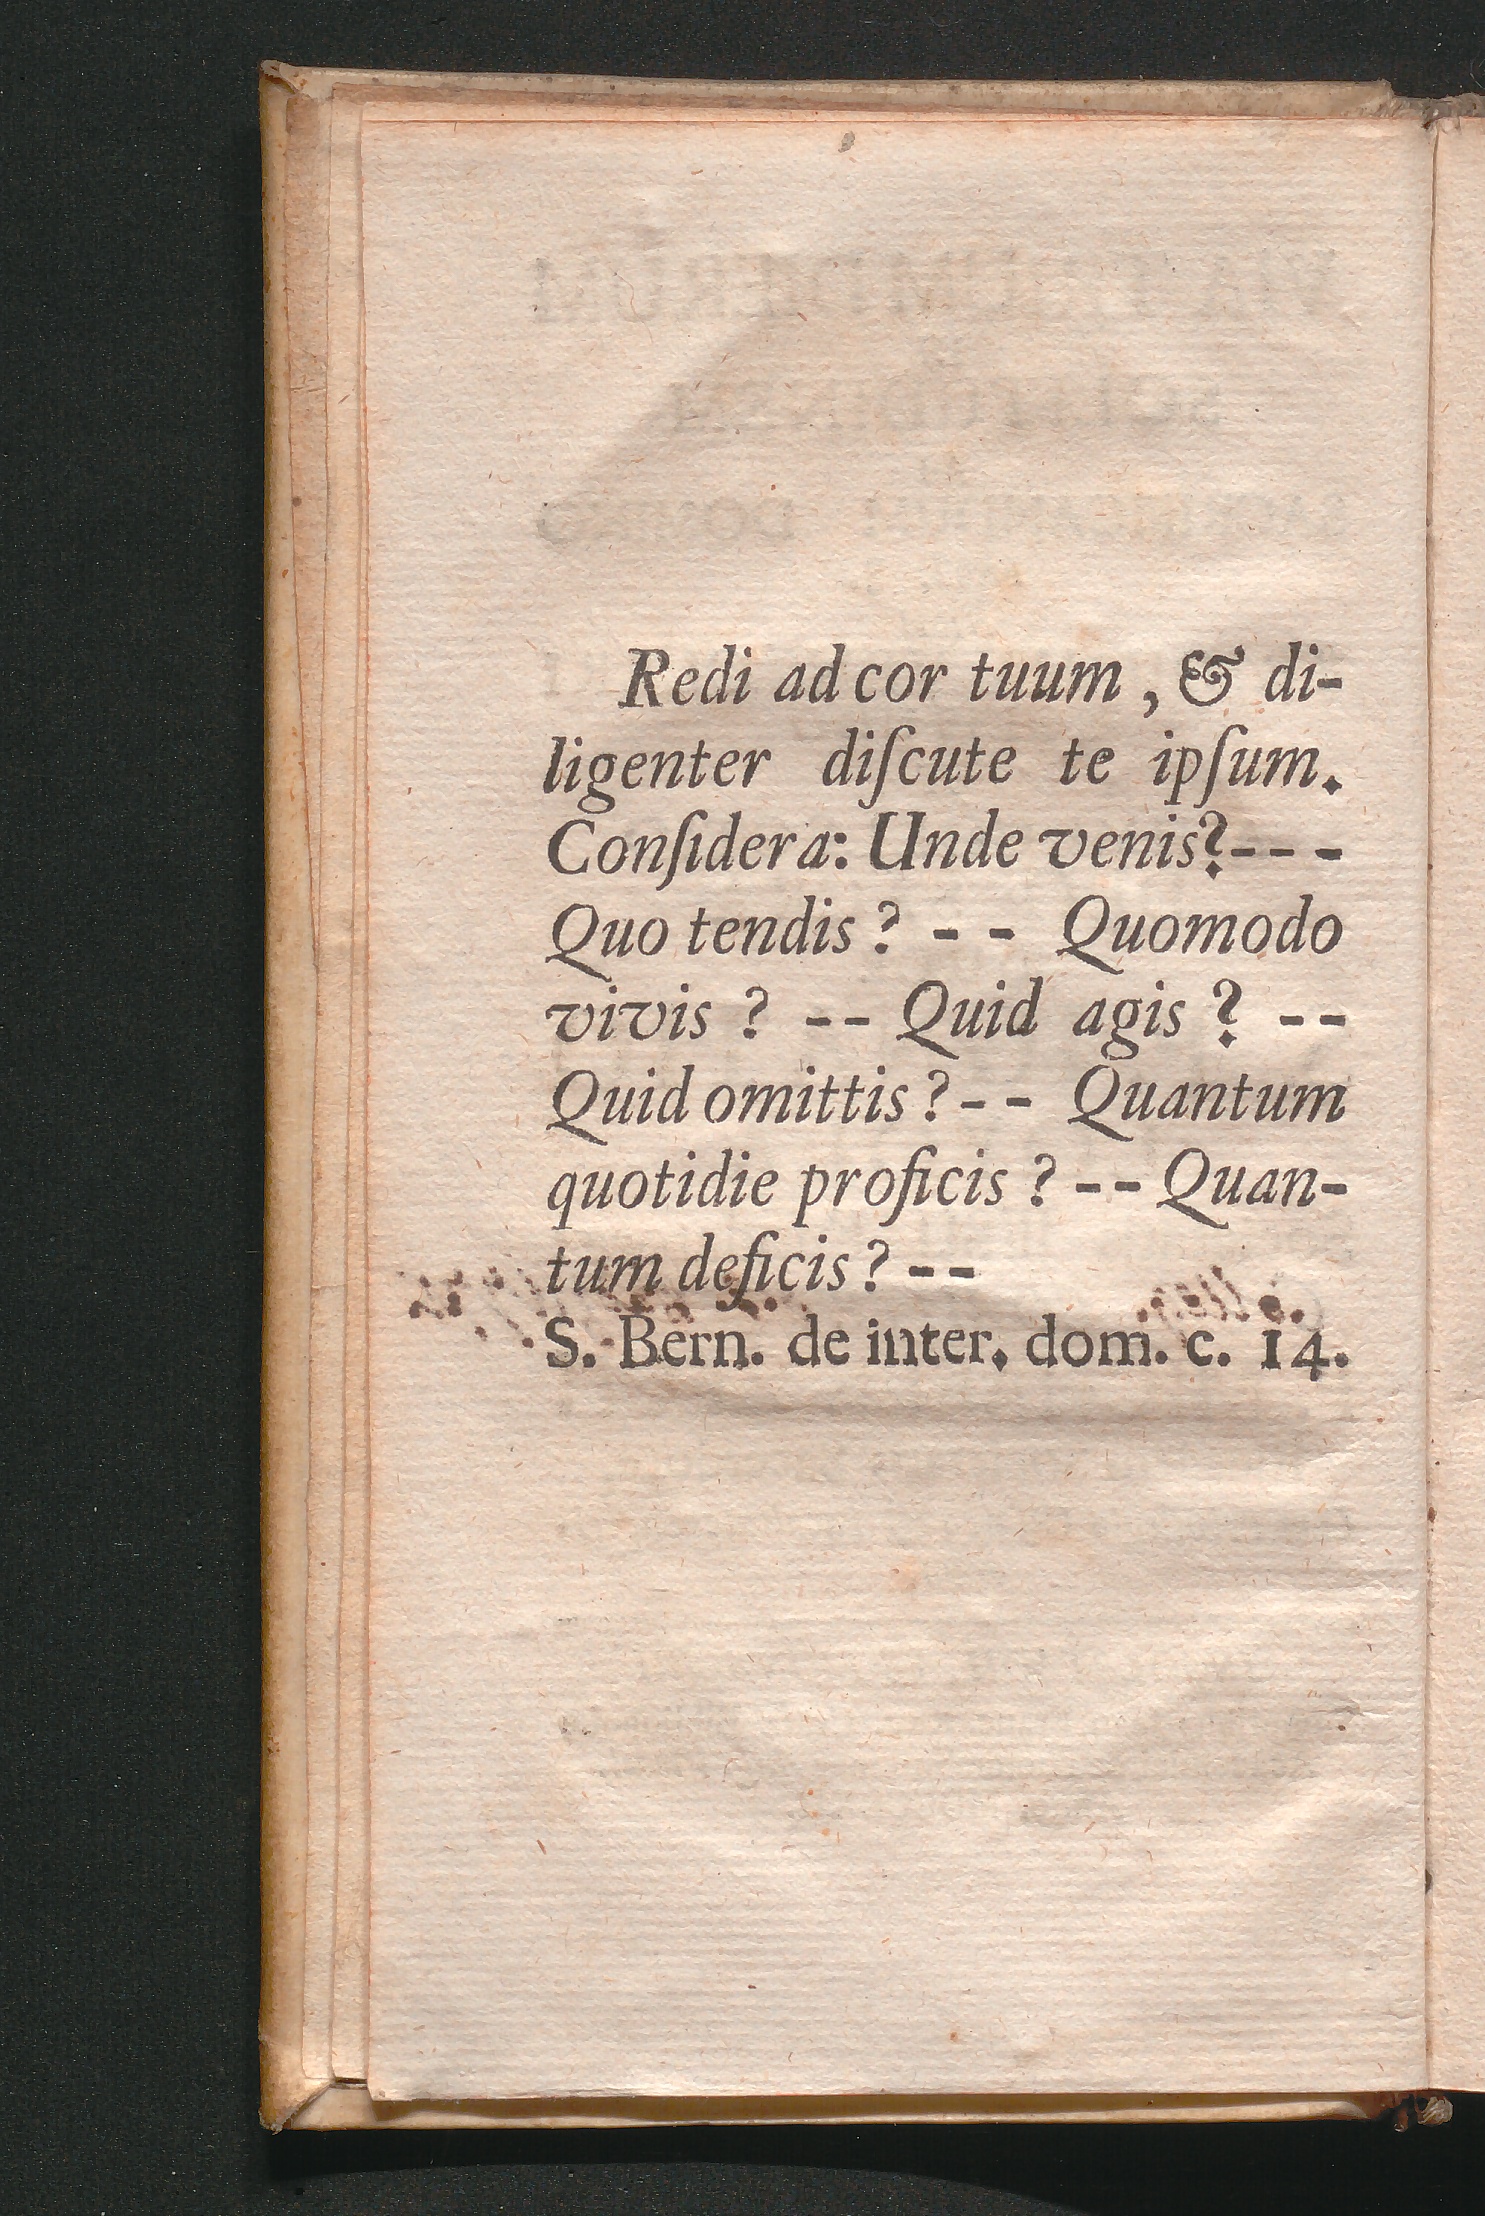 Redi ad cor tuum, & di-
ligenter diſcute te ipſum.
Conſidera: Unde venis?---
Quo tendis? -- Quomodo
vivis? -- Quid agis? --
Quid omittis? -- Quantum
quotidie proficis? -- Quan-
tum deficis? --
S. Bern. de inter. dom. c. 14.